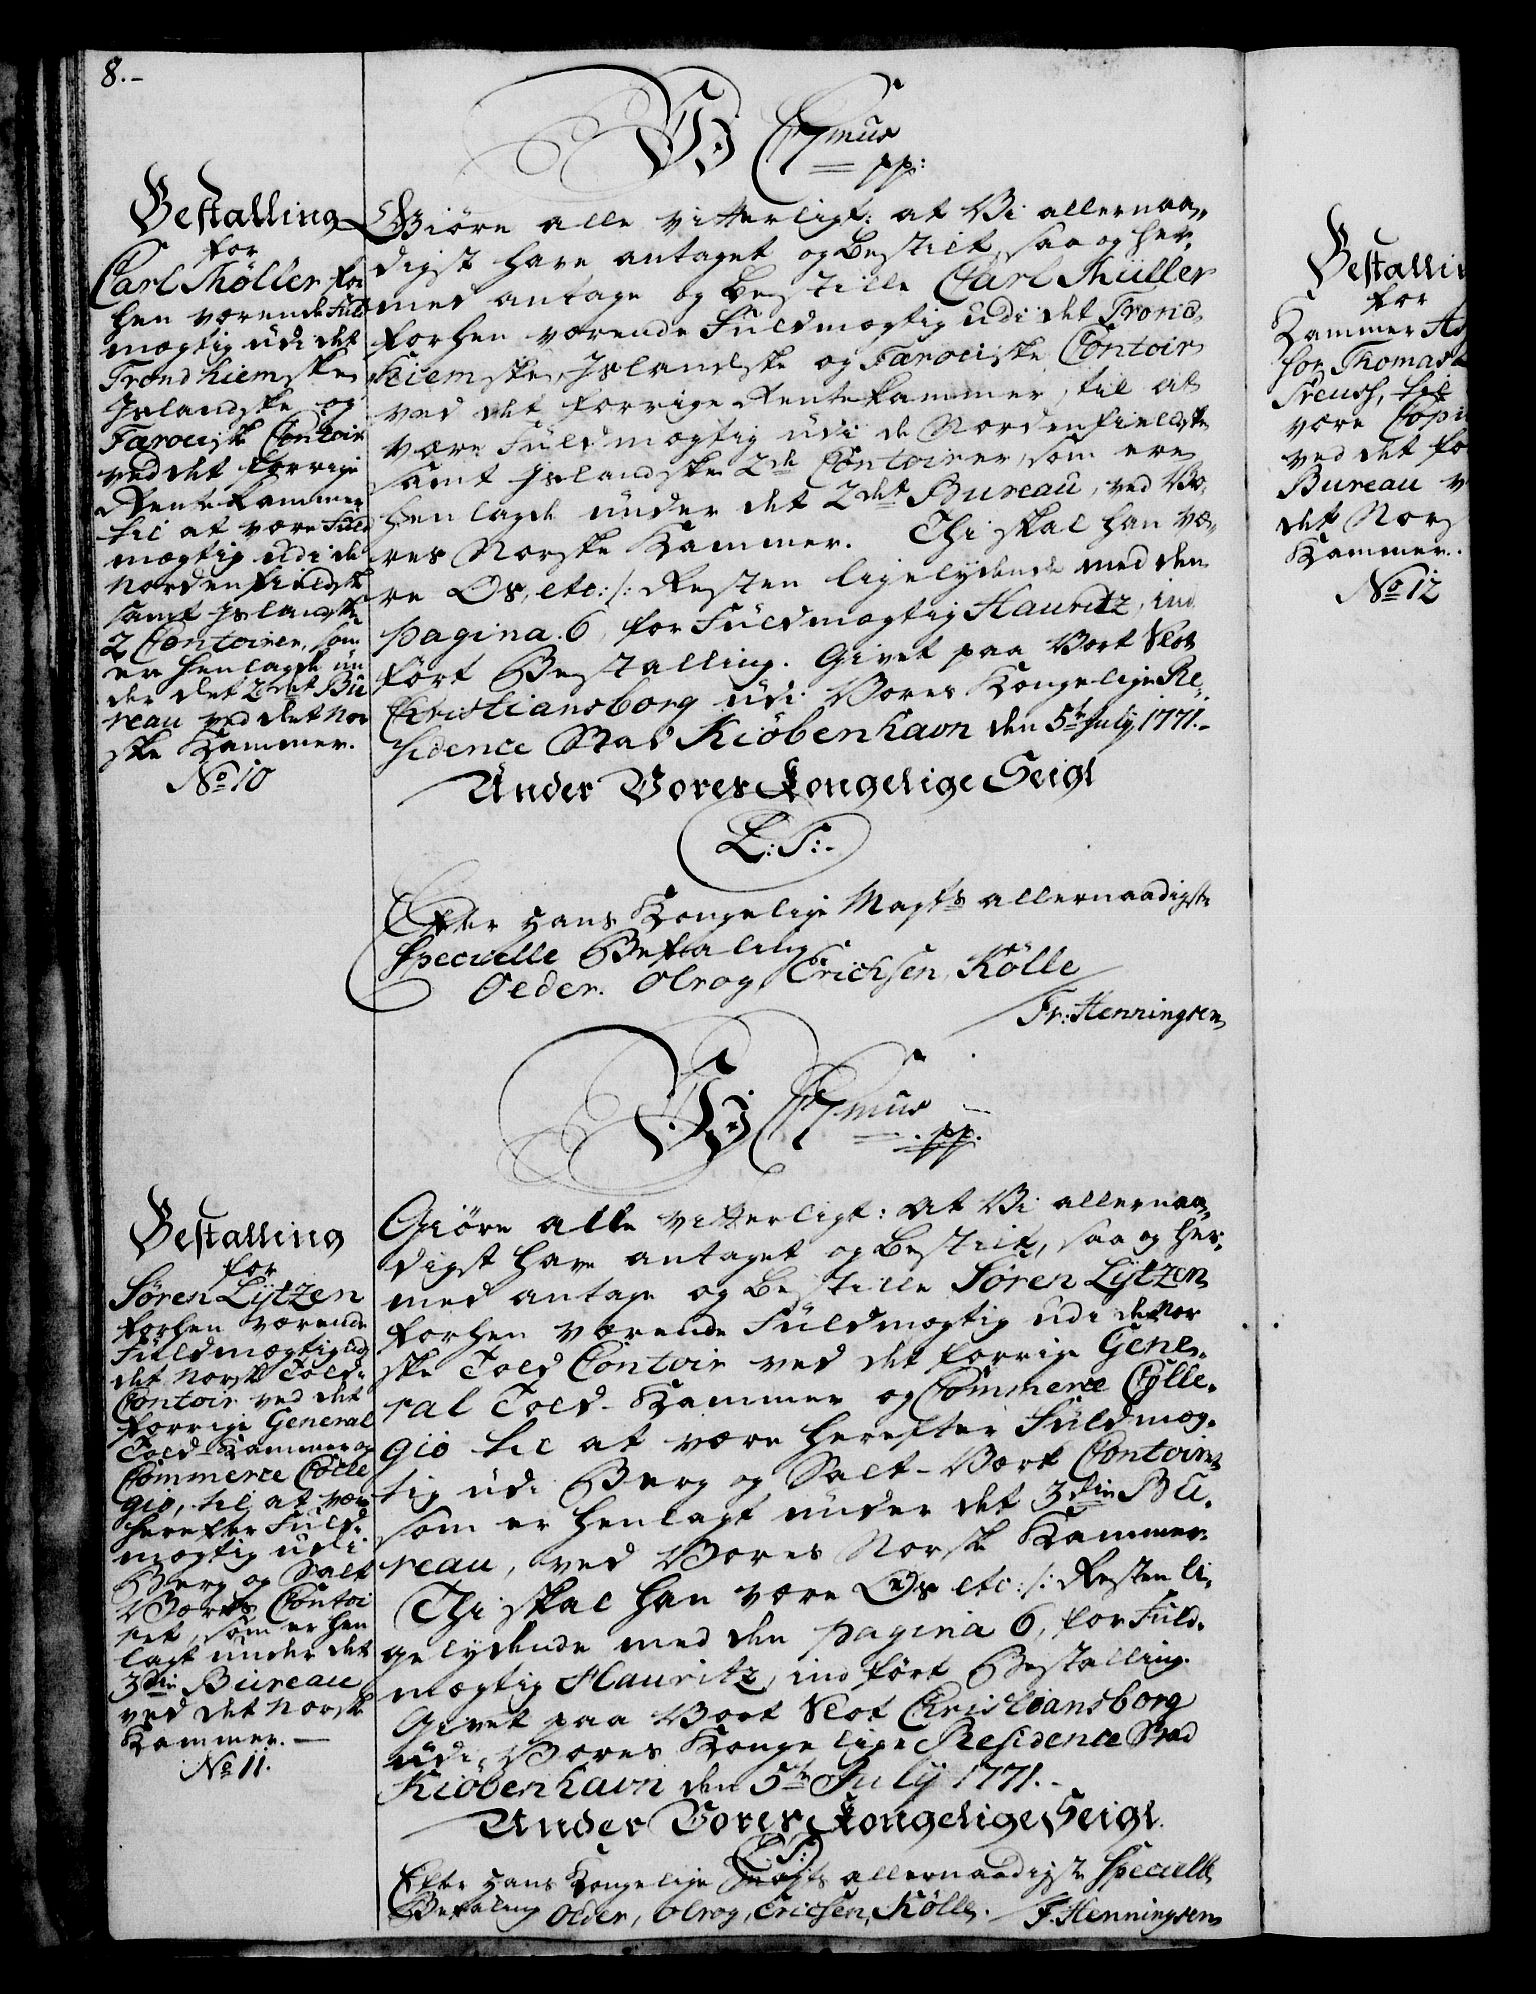 8.-
Vi Chrnus
pp:
Bestalling
for
Carl Møller for
hen værende Fuld
mægtig udi det
Trondhiemske
Jslandske og
Færøeisk Contoir
ved det forrige
Rente Kammer
til at være Fuld
mægtig udi de
Nordenfieldske
samt Jslandske
2 Contoirer, som
ere henlagde un
der det 2det Bu
reau ved det Nor
ske Kammer.
No 10
Giöre alle vitterligt: at Vi allernaa,,
digst have antaget og bestilt, saa og her,
med antage og bestille Carl Müller
forhen værende Fuldmægtig udi det Trond,
hiemske, Jslandske og Færoeiske Contoir
ved det forrige Rentekammer, til at
være Fuldmægtig udi de Nordenfieldske
samt Jslandske 2de Contoirer, som ere
henlagde under det 2det Bureau, ved Vo,
res Norske Kammer. Thi skal han væ,
re Os, etc: /: Resten ligelydende med den
pagina 6, for Fuldmægtig Hauritz, ind
fört Bestalling. Givet paa Vort Slot
Christiansborg udi Vores Kongelige Re,
sidence Stad Kiöbenhavn den 5te July 1771.-
Under Vores Kongelige Seigl
L:S:-
Efter Hans Kongelige Mayts allernaadigste
Specielle Befaling
Oeder. Olrog, Erichsen, Kölle
/Fr: Henningsen
Vi Chrnus
pp.
Bestalling
for
Sören Lytzen
forhen værende
Fuldmægtig udi
det Norske Told-
Contoir ved det
forrige General
Told-Kammer og
Commerce Colle
gio, til at være
herefter Fuld-
mægtig udi
Berg og Salt
Værks Contoi
ret, som er hen
lagt under det
3die Bureau
ved det Norske
Kammer. -
No 11.
Giöre alle vitterligt: at Vi allernaa,,
digst have antaget og bestilt, saa og her,
med antage og bestille Sören Lytzen
forhen værende Fuldmægtig udi det Nor
ske Told Contoir ved det forrige Gene,
ral Told-Kammer og Commerce Colle,
gio til at være herefter Fuldmæg,
tig udi Berg og Salt-Værk Contoiret
som er henlagt under det 3die Bu,
reau, ved Vores Norske Kammer.
Thi skal han være Os etc: /: Resten li,
gelydende med den pagina 6, for Fuld,
mægtig Hauritz, ind fört Bestalling.
Givet paa Vort Slot Christiansborg
udi Vores Kongelige Residence Stad
Kiöbenhavn den 5te July 1771.-
Under Vores Kongelige Seigl.
L:S:
Efter Hans Kongelige Mayts allernaadigste Specielle
Befaling Oeder, Olrog, Ericsen, Kölle. /F. Henningsen
Bestallin
for
Kammer As
sor Thomas
til
være Copi
ved det fo
Bureau v
det Nors
Kammer.
No 12